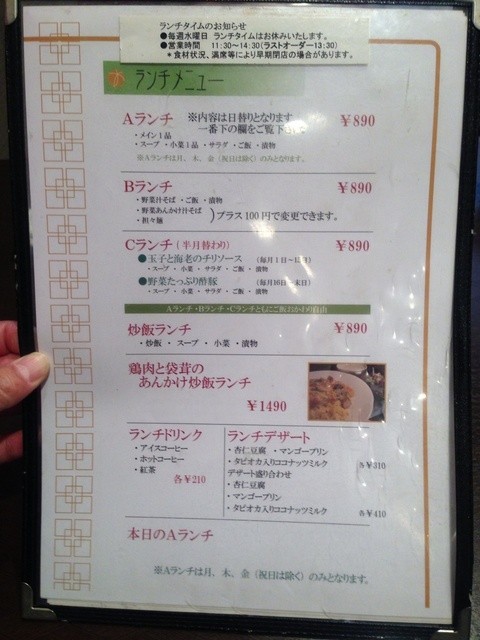 ランチタイムのお知らせ
●毎週水曜日 ランチタイムはお休みいたします。
●営業時間 11:30～14:30(ラストオーダー13:30)
＊食材状況、満席等により早期閉店の場合があります。
ランチメニュー
Aランチ ※内容は日替りとなります ￥890
一番下の欄をご覧下さい
・メイン1品
・スープ ・小菜1品 ・サラダ ・ご飯 ・漬物
※Aランチは月、木、金（祝日は除く）のみとなります。
Bランチ ￥890
・野菜汁そば ・ご飯 ・漬物
・野菜あんかけ汁そば
・担々麺
)プラス100円で変更できます。
Cランチ（半月替わり） ￥890
●玉子と海老のチリソース （毎月1日～15日）
・スープ ・小菜 ・サラダ ・ご飯 ・漬物
●野菜たっぷり酢豚 （毎月16日～末日）
・スープ ・小菜 ・サラダ ・ご飯 ・漬物
Aランチ・Bランチ・Cランチともにご飯おかわり自由
炒飯ランチ ￥890
・炒飯 ・スープ ・小菜 ・漬物
鶏肉と袋茸の
あんかけ炒飯ランチ
￥1490
ランチドリンク
・アイスコーヒー
・ホットコーヒー
・紅茶
各￥210
ランチデザート
・杏仁豆腐 ・マンゴープリン
・タピオカ入りココナッツミルク 各￥310
デザート盛り合わせ
・杏仁豆腐
・マンゴープリン
・タピオカ入りココナッツミルク 各￥410
本日のAランチ
※Aランチは月、木、金（祝日は除く）のみとなります。